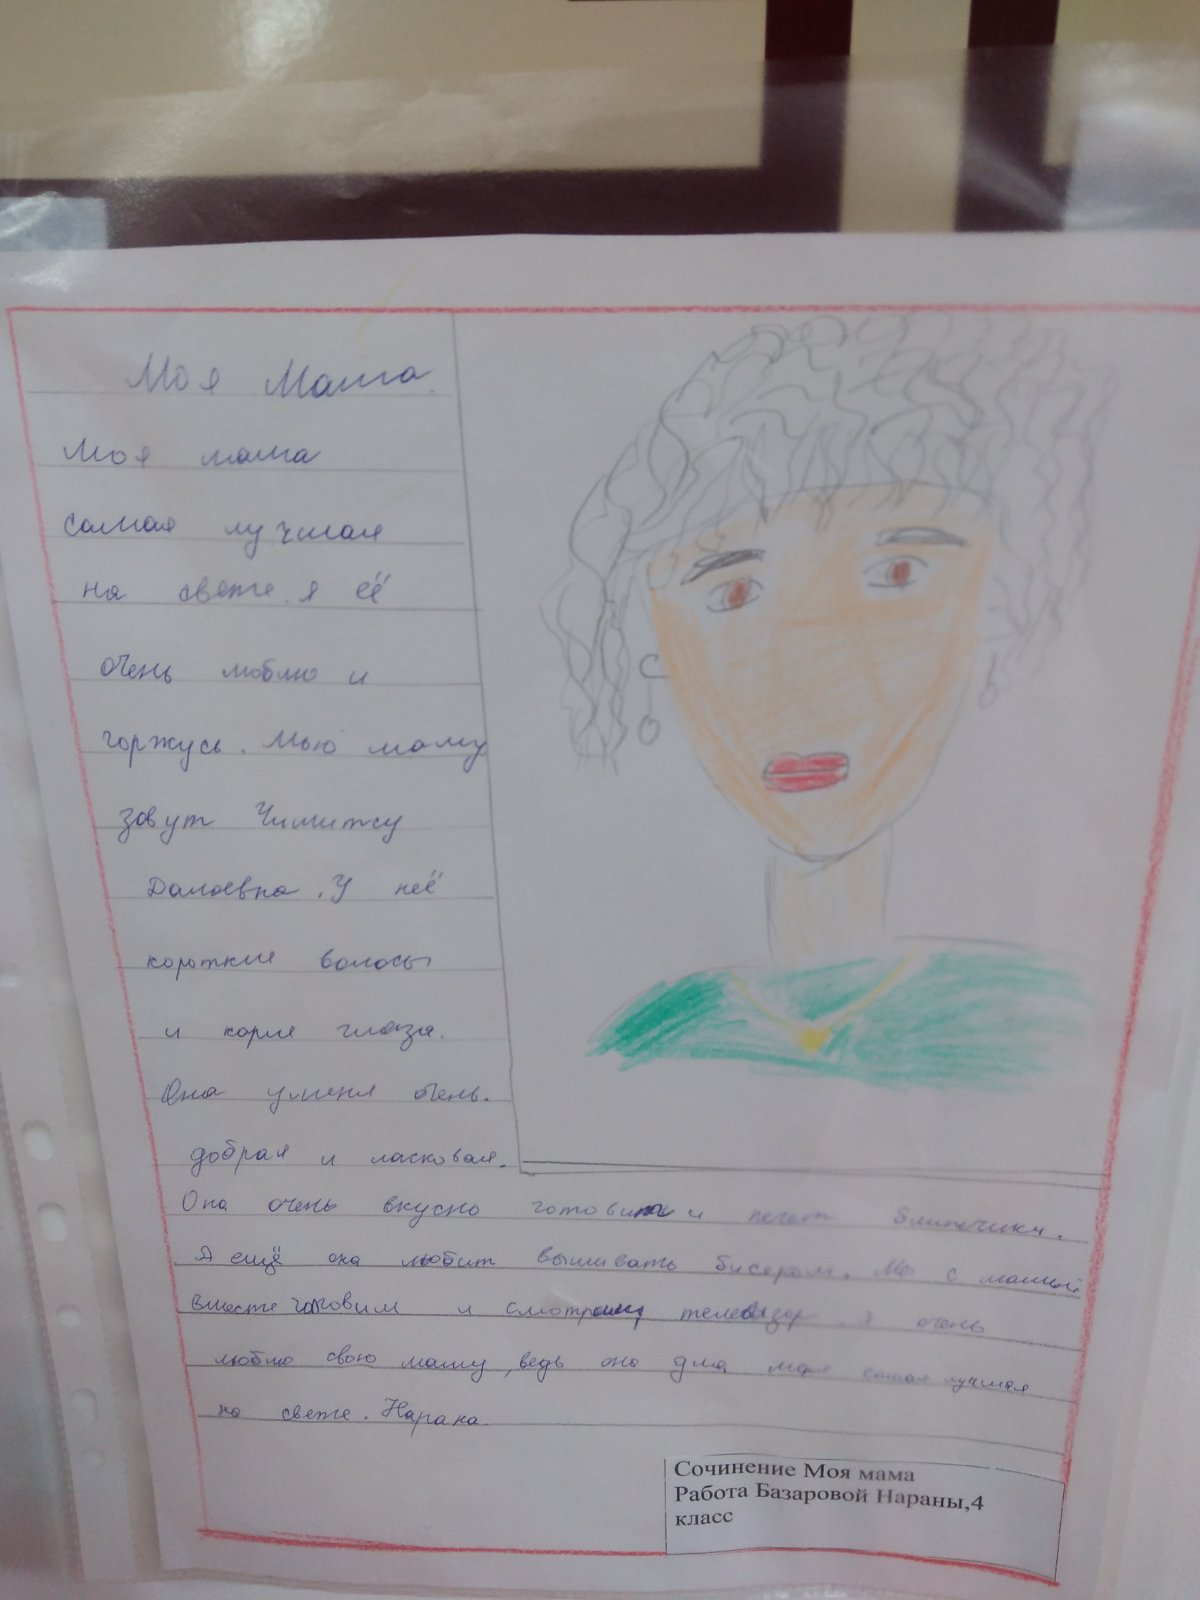 Моя Мама.
Моя мама
самая лучшая
на свете. я её
очень люблю и
горжусь. Мою маму
зовут Чимитсу
Далаевна. У неё
короткие волосы
и карие глаза.
Она у меня очень.
добрая и ласковая.
Она очень вкусно готовит и печет блинчики.
А ещё она любит вышивать бисером. Мы с мамой
вместе готовим и смотрим телевизор. я очень
люблю свою маму, ведь она для меня самая лучшая
на свете. Нарана
Сочинение Моя мама
Работа Базаровой Нараны,4
класс